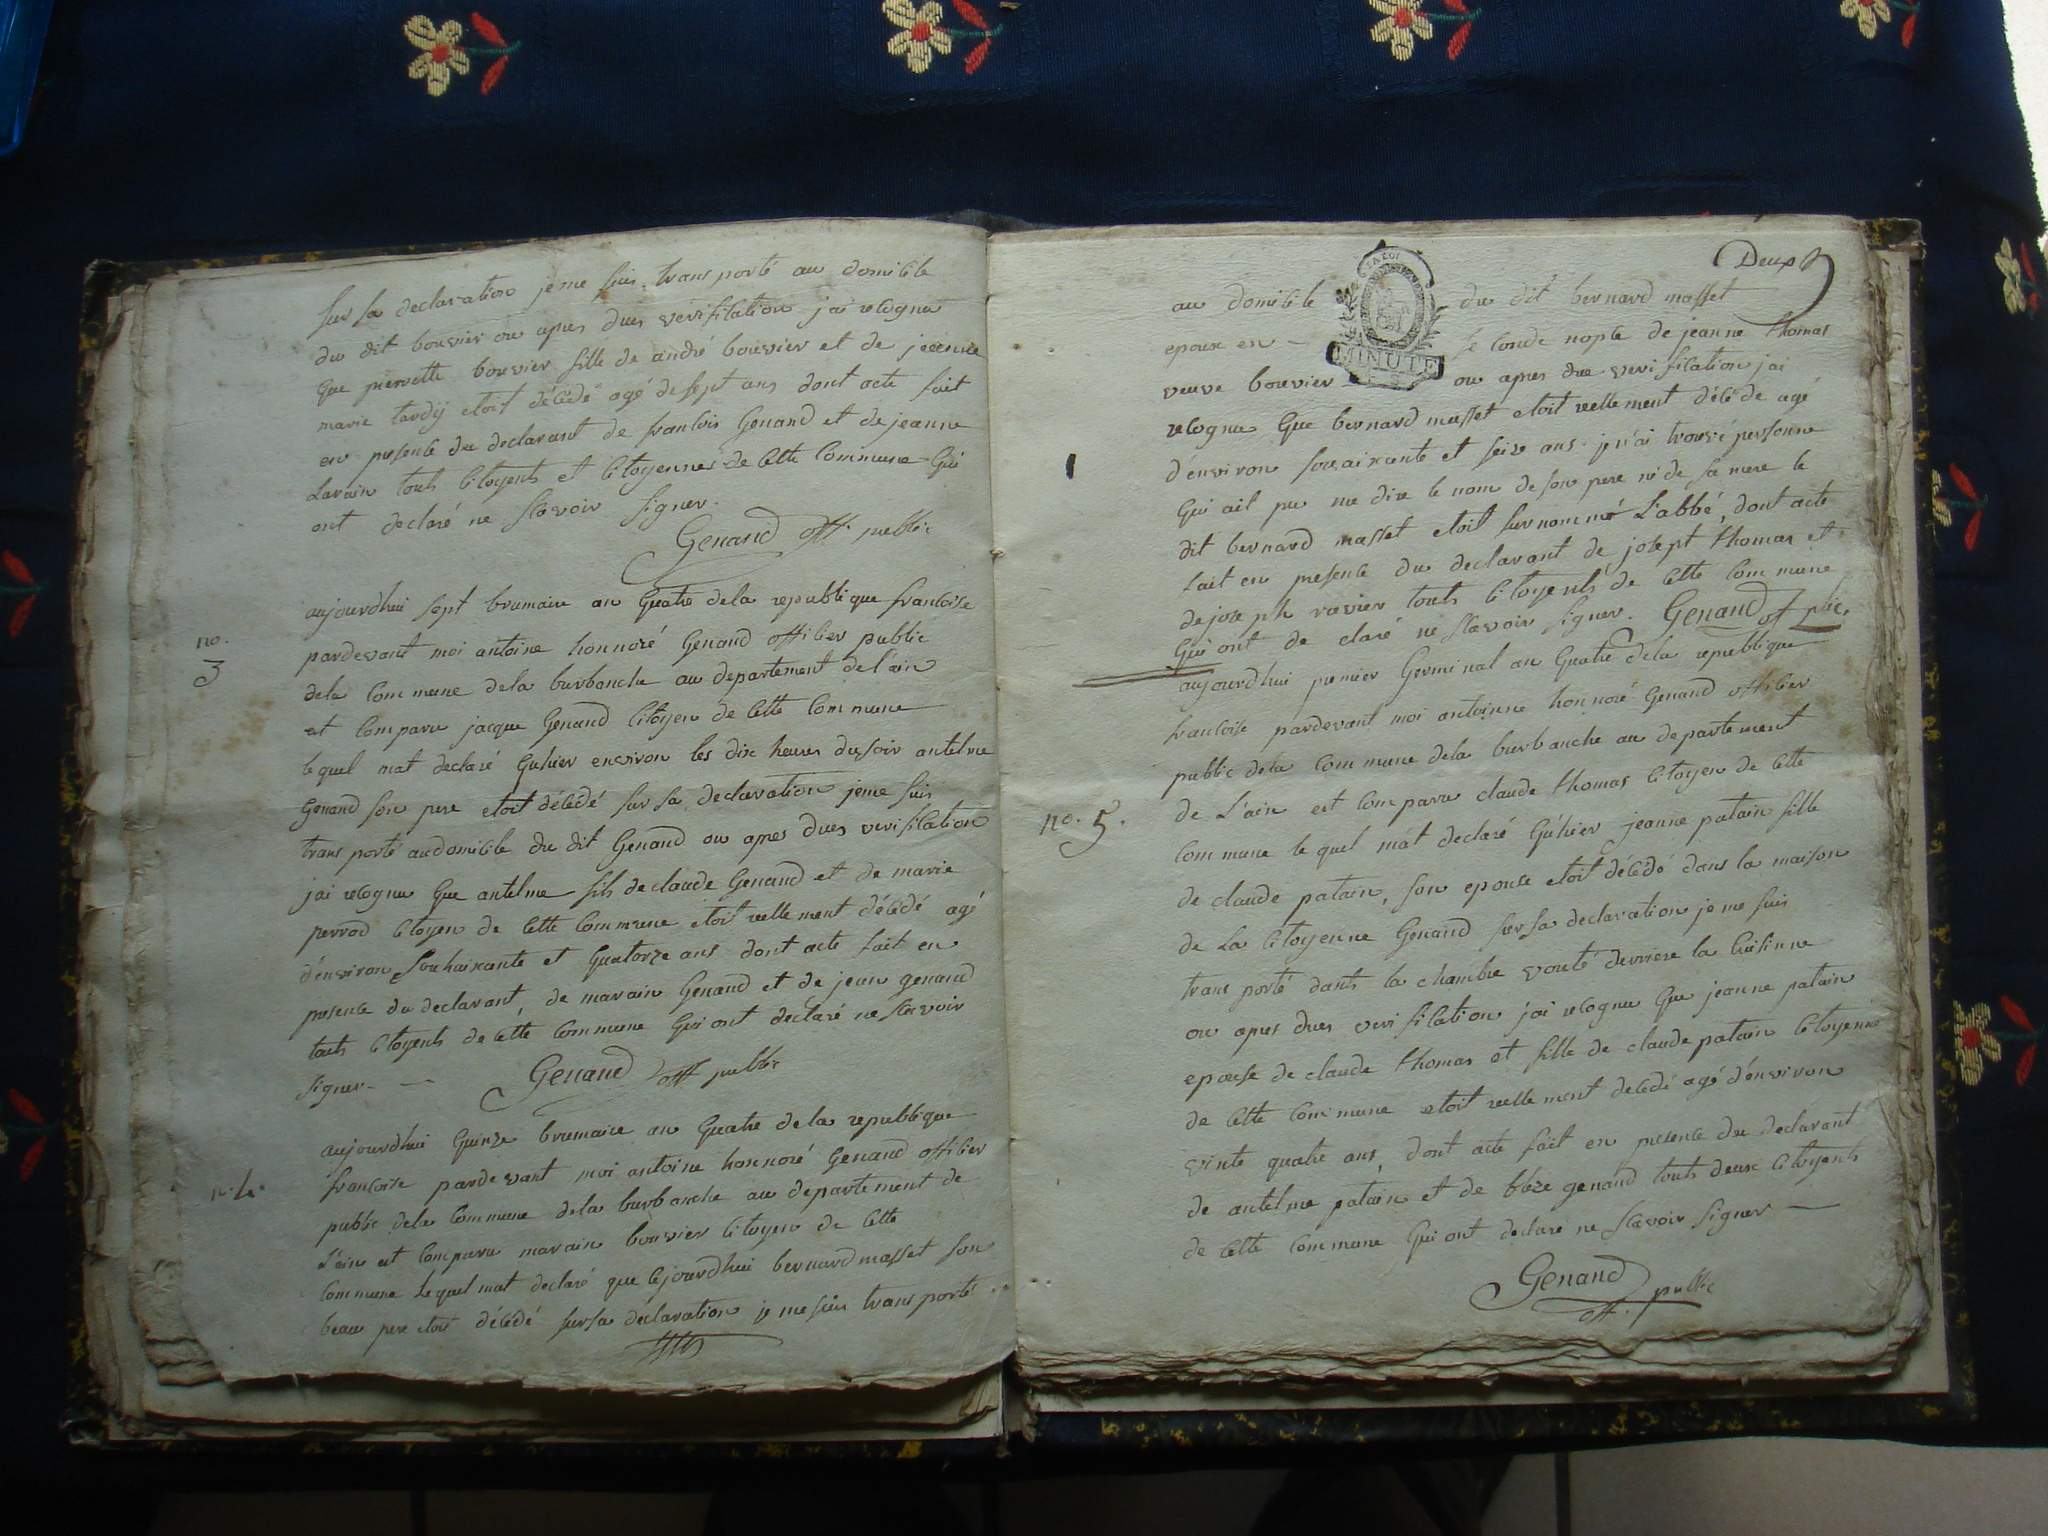 sur sa declaration je me suis transporté au domicile
du dit bouvier ou apres dues verification j'ai recognu
que pierrette bouvier fille de andré bouvier et de jeanne
marie tardÿ etoit décédé agé de sept ans dont acte fait
en presence du declarant de francois Genand et de jeanne
Lavain touts citoyents et citoyennes de cette Commune Qui
ont declaré ne scavoir signer.
Genand off. public
aujourdhui sept brumaire an Quatre dela republique francoise
no.
3
pardevant moi antoine honnoré Genand officier public
dela Commune dela burbanche au departement de l'ain
est Comparu jacque Genand Citoyen de Cette Commune
le quel mat declaré Quhier environ les dix heures du soir antelme
Genand son pere etoit décédé sur sa declaration jeme suis
trans porté audomicile du dit Genand ou apres dues verification
j'ai recognu Que antelme fils de claude Genand et de marie
perrod Citoyen de Cette Commune etoit reelle ment décédé agé
d'environ souhaixante et Quatorze ans dont acte fait en
presence du declarant, de marain Genand et de jean genand
touts Citoyents de Cette Commune Qui ont declaré ne scavoir
signer. Genand off public
aujourdhui Quinze brumaire an Quatre de la republique
n. 4.
francoise pardevant moi antoine honnoré Genand officier
public dela Commune dela burbanche au departement de
L'ain est Comparu marain bouvier Citoyen de Cette
Commune Lequel mat declaré que Cejourdhui bernard masset son
beau pere etoit décédé sursa déclaration je me suis trans porté
Deux
au domicile du dit bernard masset
LA LOI
MINUTE
epoux en se Conde nopce de jeanne thomas
veuve bouvier ou apres due verification j'ai
recognu Que bernard masset etoit reellement décédé agé
d'environ souaixante et seize ans je n'ai trouvé personne
Qui ait pu me dire le nom de son pere ni de sa mere le
dit bernard masset etoit surnommé L'abbé, dont acte
fait en presence du declarant de josept thomas et
de joseph ravier touts Citoyents de Cette Commune
Qui ont de claré ne scavoir signer. Genand of plic.
aujourdhui premier Germinal an Quatre dela republique
francoise pardevant moi antoinne honnoré Genand officier
public dela Commune dela burbanche au departement
de L'ain est Comparu claude thomas Citoyen de Cette
no. 5.
Commune le quel mat declaré Quhier jeanne patain fille
de claude patain, son epouse etoit décédé dans la maison
de La Citoyenne Genand sur sa declaration je me suis
trans porté dants la chambre vouté derriere la Cuisinne
ou apres dues verification j'ai recognu Que jeanne patain
epouse de claude thomas et fille de claude patain Citoyenne
de Cette Commune etoit reelle ment décédé agé d'environ
vinte quatre ans, dont acte fait en presence du declarant
de antelme patain et de bleze genand touts deux Citoyents
de Cette Commune Qui ont declaré ne scavoir signer
Genand
off. public